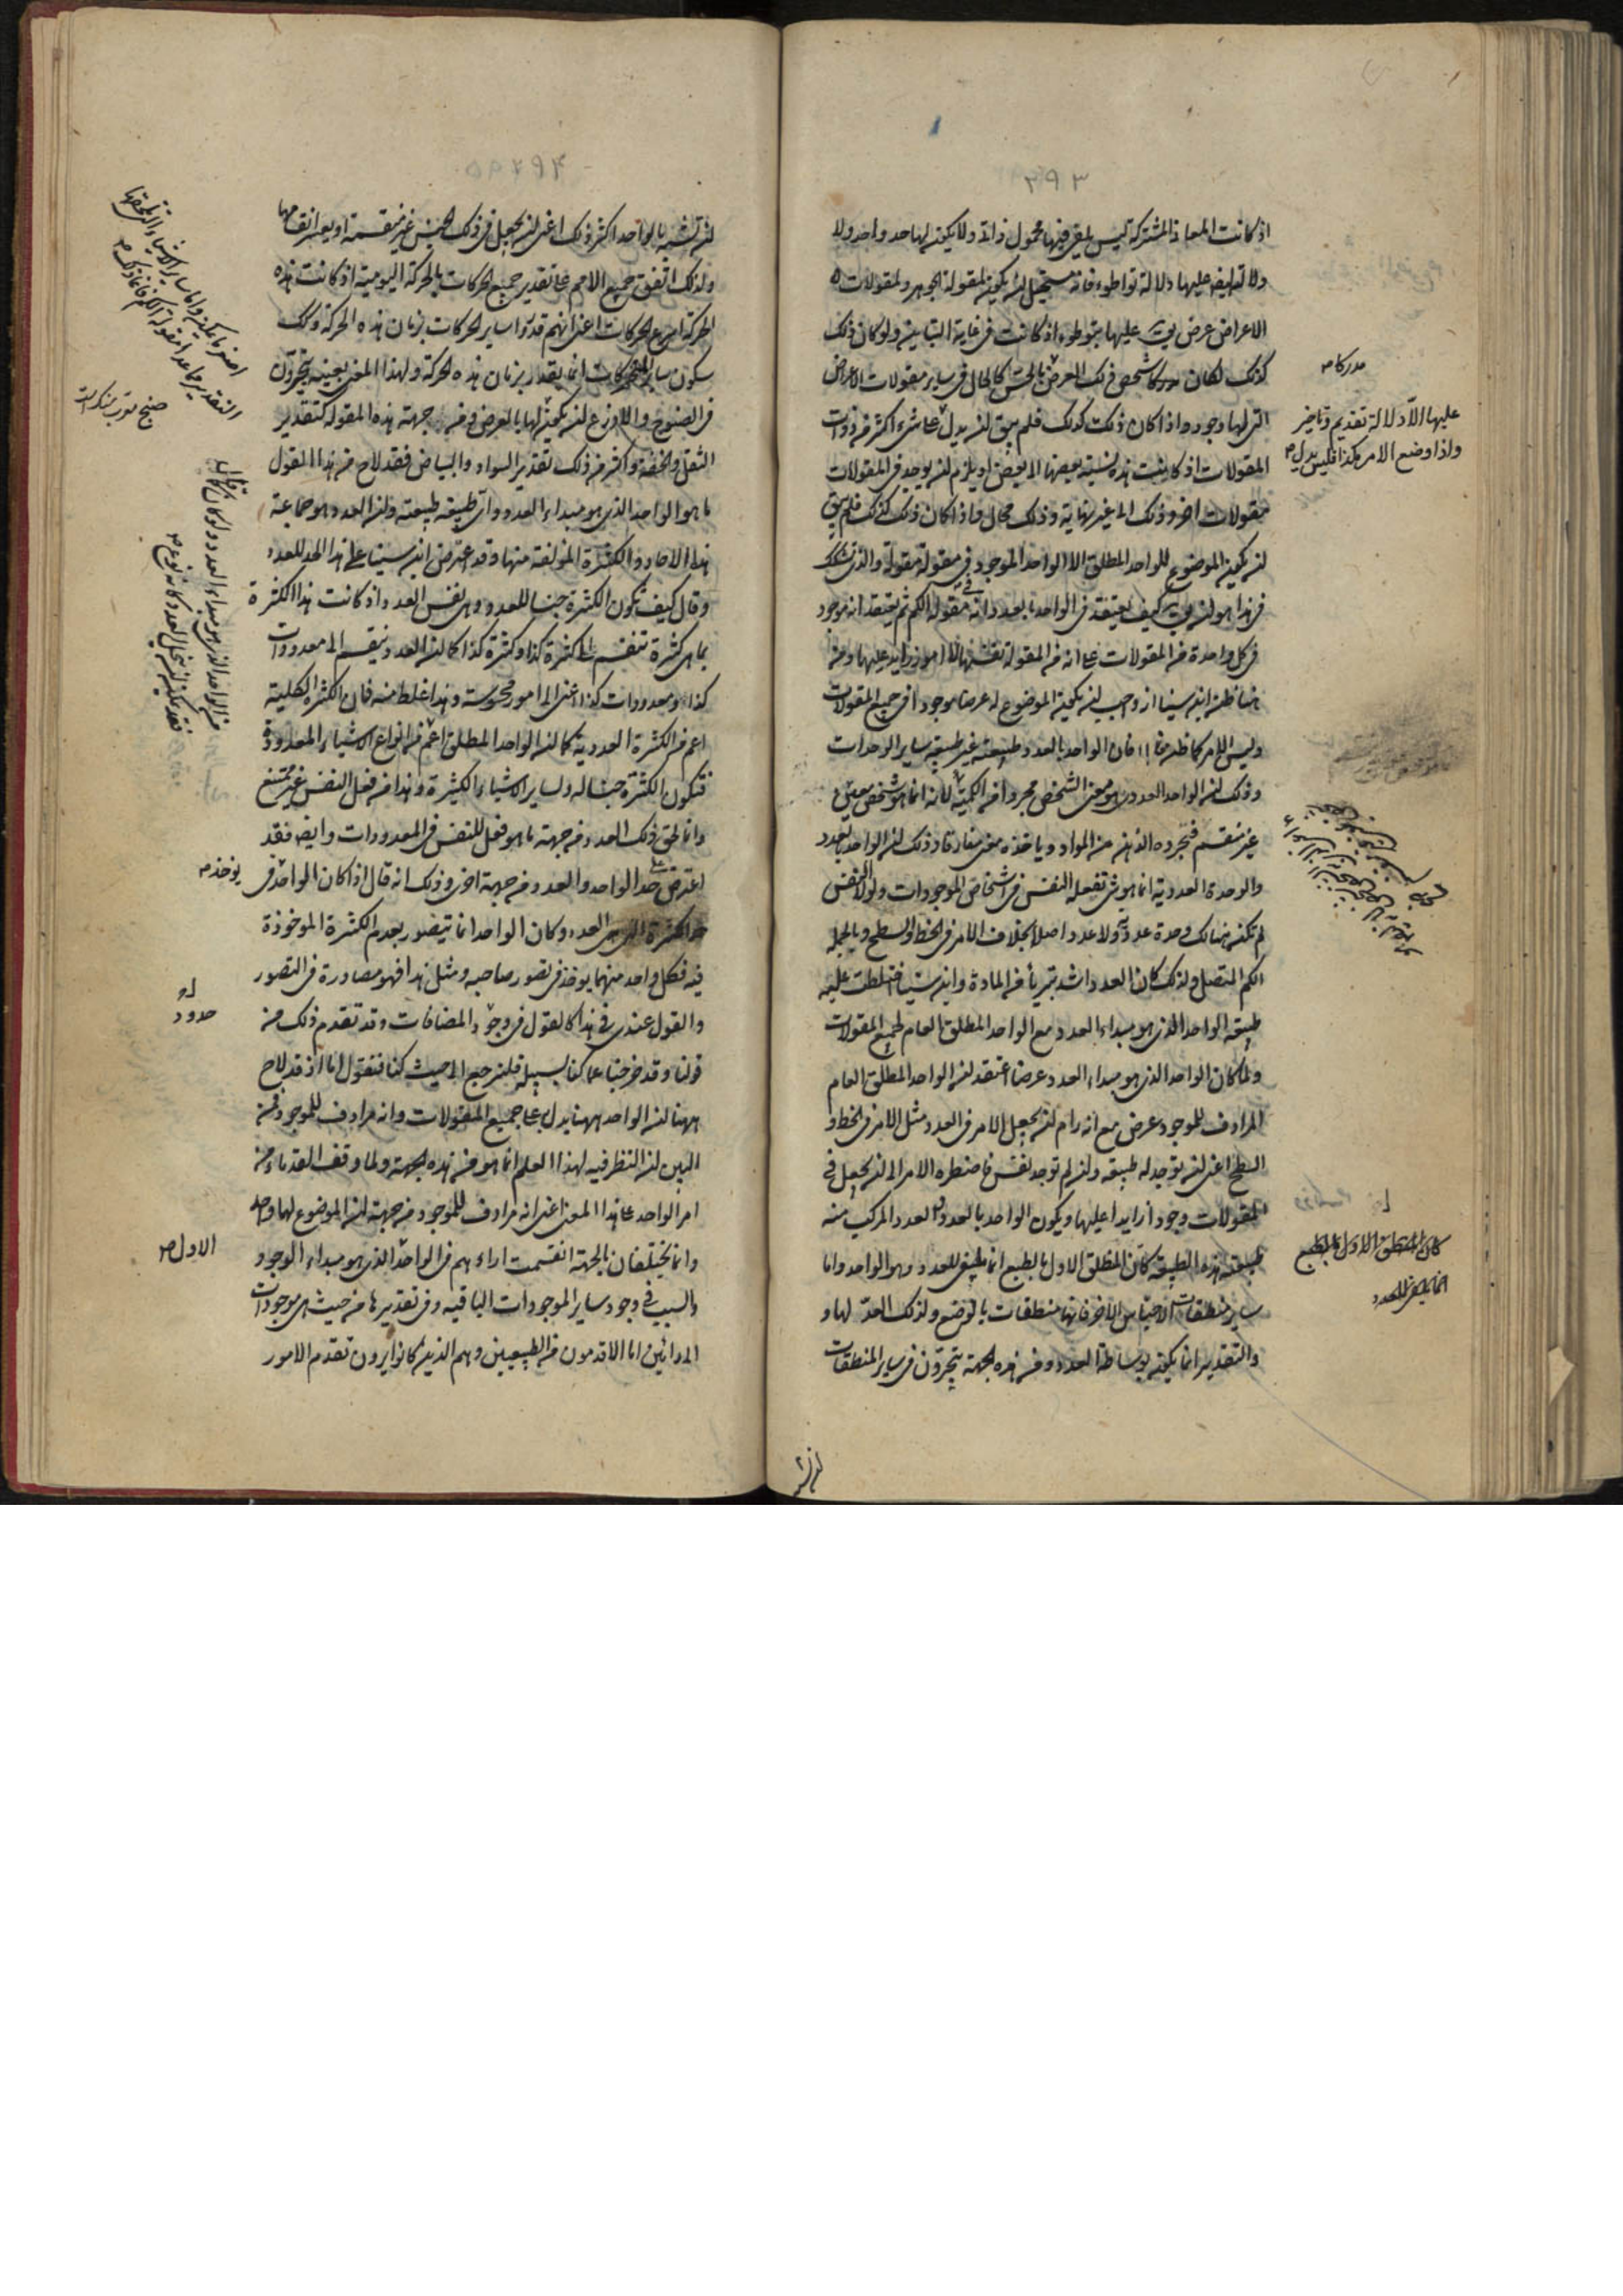 ٣٩٣
اذ كانت المعانى المشتركة ليس يلفى فيها محمول ذاتى ولا يكون لها حد واحد ولا
ولا تدل ايضا عليها دلالة تواطوء فانه مستحيل ان يكون لمقولة الجوهر ولمقولات
الاعراض عرض يقال عليها بتوطوء اذ كانت فى غاية التباين ولو كان ذلك
كذلك لكان مدركا شخص ذلك العرض بالحس كالحال فى ساير مقولات الاعراض
التى لها وجود واذا كان ذلك كذلك فلم يبق ان يدل على شىء اكثر من ذوات
المقولات اذ كانت هذه نسبة بعضها الى بعض او يلزم ان يوجد فى المقولات
مقولات اخر وذلك الى غير نهاية وذلك محال واذا كان ذلك كذلك فلم يبق
ان يكون الموضوع للواحد المطلق الا الواحد الموجود فى مقولة مقولة والذى تشكك
فى هذا هو ان يقال كيف يعتقد فى الواحد بالعدد انه فى مقولة الكم ثم يعتقد انه موجود
فى كل واحدة من المقولات على انه من المقولة نفسها لا امر زايد عليها ومن
هنا ظن ابن سينا انه واجب ان يكون الموضوع له عرضا موجودا فى جميع المقولات
وليس الامر كما ظن فان الواحد بالعدد طبيعته غير طبيعة ساير الوحدات
وذلك ان الواحد العددى هو معنى الشخص مجردا من الكمية لانه انما هو شخص بمعنى
غير منقسم فتجرده الذهن من المواد وياخذه معنى مفارقا وذلك ان الواحد بالعدد
والوحدة العددية انما هو شىء تفعله النفس فى اشخاص الموجودات ولولا النفس
لم تكن هنالك وحدة عددية ولا عدد اصلا بخلاف الامر فى الخط والسطح وبالجملة
الكم المتصل ولذلك كان العدد اشد تبريا من المادة وابن سينا اختلطت عليه
طبيعة الواحد الذى هو مبداء العدد مع الواحد المطلق العام لجميع المقولات
ولما كان الواحد الذى هو مبداء العدد عرضا اعتقد ان الواحد المطلق العام
المرادف للموجود عرض مع انه رام ان يجعل الامر فى العدد مثل الامر فى الخط و
السطح اعنى ان يوجد له طبيعة وان لم توجد نفس فاضطره الامر الى ان يجعل فى
المقولات وجودا زايدا عليها ويكون الواحد بالعدد والعدد المركب منه
طبيعته هذه الطبيعة كان المطلق الاول بالطبع انما يلفى للعدد وهو الواحد واما
ساير منطقات الاجناس الاخر فانها منطقات بالوضع ولذلك العدّ لها و
والتقدير انما يكون بوساطة العدد ومن هذه الجهة يتحرون فى ساير المنطقات
مدركا
عليها الا دلالة تقديم وتاخير
واذا وضع الامر هكذا فليس يدل
كان المنطق الاول بالطبع
انما يلفى للعدد
ان تشبه
ان تشبه بالواحد اكثر ذلك اعنى ان يجعل فى ذلك الجنس غير منقسمة او يعسر انقسامها
ولذلك اتفق جميع الامم على تقدير جميع الحركات بالحركة اليومية اذ كانت هذه
الحركة اسرع الحركات اعنى انهم قدروا ساير الحركات بزمان هذه الحركة وكذلك
سكون ساير المتحركات انما يقدر بزمان هذه الحركة ولهذا المعنى بعينه يتحرون
فى الصنوج والاذرع ان يكون لها بالعرض ومن جهة هذه المقولة كتقدير
الثقل والخفة واكثر من ذلك تقدير السواد والبياض فقد لاح من هذا القول
ما هو الواحد الذى هو مبداء العدد واى طبيعة طبيعته وان العدد هو جماعة
هذه الاحاد والكثرة المؤلفة منها وقد اعترض ابن سينا على هذا الحد للعدد
وقال كيف تكون الكثرة جنسا للعدد وهى نفس العدد اذ كانت هذا الكثرة
بما هى كثرة تنقسم الى كثرة كذا وكثرة كذا كما ان العدد ينقسم الى معدودات
كذا ومعدودات كذا اعنى الى امور محسوسة وهذا غلط منه فان الكثرة الكلية
اعم من الكثرة العددية كما ان الواحد المطلق اعم من انواع الاشياء المعدودة
فتكون الكثرة جنسا له ولساير الاشياء الكثيرة وهذا من فعل النفس غير ممتنع
وانما لحق ذلك العدد من جهة ما هو فعل للنفس فى المعدودات وايضا فقد
اعترض على حد الواحد والعدد من جهة اخرى وذلك انه قال اذا كان الواحد فى
حد الكثرة التى هى العدد وكان الواحد انما يتصور بعدم الكثرة الموخوذة
فيه فكل واحد منهما يوخذ فى تصور صاحبه ومثل هذا فهو مصادرة فى التصور
والقول عندى فى هذا كالقول فى وجود المضافات وقد تقدم ذلك من
قولنا وقد خرجنا عما كنا بسبيله فلنرجع الى حيث كنا فنقول انا اذ قد لاح
ههنا ان الواحد ههنا يدل على جميع المقولات وانه مرادف للموجود فمن
البين ان النظر فيه لهذا العلم انما هو من هذه الجهة ولما وقف القدماء من
امر الواحد على هذا المعنى اعنى انه مرادف للموجود من جهة ان الموضوع لها واحد
وانما يختلفان بالجهة انقسمت اراءهم فى الواحد الذى هو مبداء الوجود
والسبب فى وجود ساير الموجودات الباقية وفى تقديرها من حيث هى موجودات
الى رائين اما الاقدمون من الطبيعيين وهم الذين كانوا يرون تقدم الامور
يوخذ
حدود
الاول